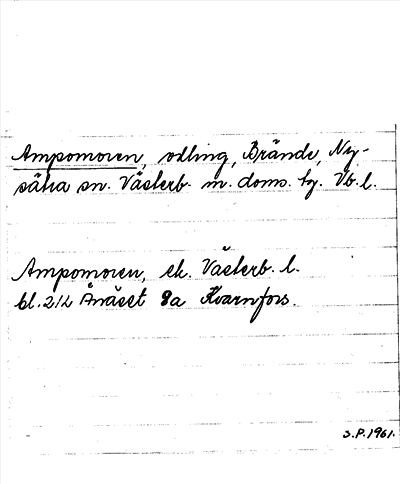 Ampomoren, odling, Brände, Ny-
sätra sn. Västerb. m. doms. tg. Vb. l.
Ampomoren, ek. Västerb. l.
bl. 212 Ånäset 9a Kvarnfors.
S.P. 1961.